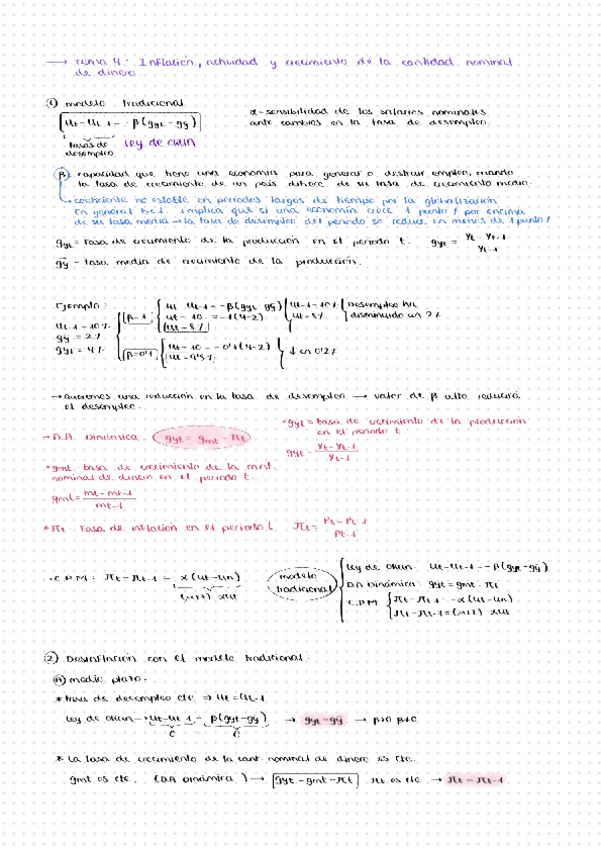 → Tema 4: Inflación, actividad y crecimiento de la cantidad nominal
de dinero
① modelo tradicional
ut-ut-1 = -β(gyt-gȳ)
α-sensibilidad de los salarios nominales
ante cambios en la tasa de desempleo.
tasas de
desempleo
Ley de okun
β capacidad que tiene una economía para generar o destruir empleo, cuando
la tasa de crecimiento de un país difiere de su tasa de crecimiento medio.
→ coeficiente no estable en períodos largos de tiempo por la globalización
En general β<1. implica que si una economía crece 1 punto % por encima
de su tasa media → la tasa de desempleo del período se reduce en menos de 1 punto %
gyt = tasa de crecimiento de la producción en el período t. gyt = yt-yt-1 / yt-1
gȳ - tasa media de crecimiento de la producción.
Ejemplo:
ut-1 = 10%
gȳ = 2%
gyt = 4%
β=1
ut-ut-1 = -β(gyt-gȳ)
ut-10 = -1(4-2)
ut = 8%
ut-1 = 10%
ut = 8%
Desempleo ha
disminuido un 2%
β=0'1
ut-10 = -0'1(4-2)
ut = 9'8%
↓ en 0'2%
→ queremos una reducción en la tasa de desempleo → valor de β alto reducirá
el desempleo.
→ D.A Dinámica gyt = gmt - πt
* gyt = tasa de crecimiento de la producción
en el período t
gyt = yt-yt-1 / yt-1
* gmt tasa de crecimiento de la cant.
nominal de dinero en el período t.
gmt = mt-mt-1 / mt-1
* πt Tasa de inflación en el período t πt = Pt-Pt-1 / Pt-1
· C.P.M: πt-πt-1 = -α(ut-un)
(μ+z) αut
modelo
tradicional
Ley de okun: ut-ut-1 = -β(gyt-gȳ)
DA Dinámica: gyt = gmt - πt
C.P.M πt-πt-1 = -α(ut-un)
πt-πt-1 = (μ+z) αut
② Desinflación con el modelo tradicional:
Ⓐ medio plazo.
* tasa de desempleo cte ⇒ ut = ut-1
Ley de okun → ut-ut-1 = β(gyt-gȳ) → gyt = gȳ → β>0 β≠0
* La tasa de crecimiento de la cant. nominal de dinero es cte.
gmt es cte. (DA Dinámica) → gyt = gmt - πt πt es cte → πt = πt-1